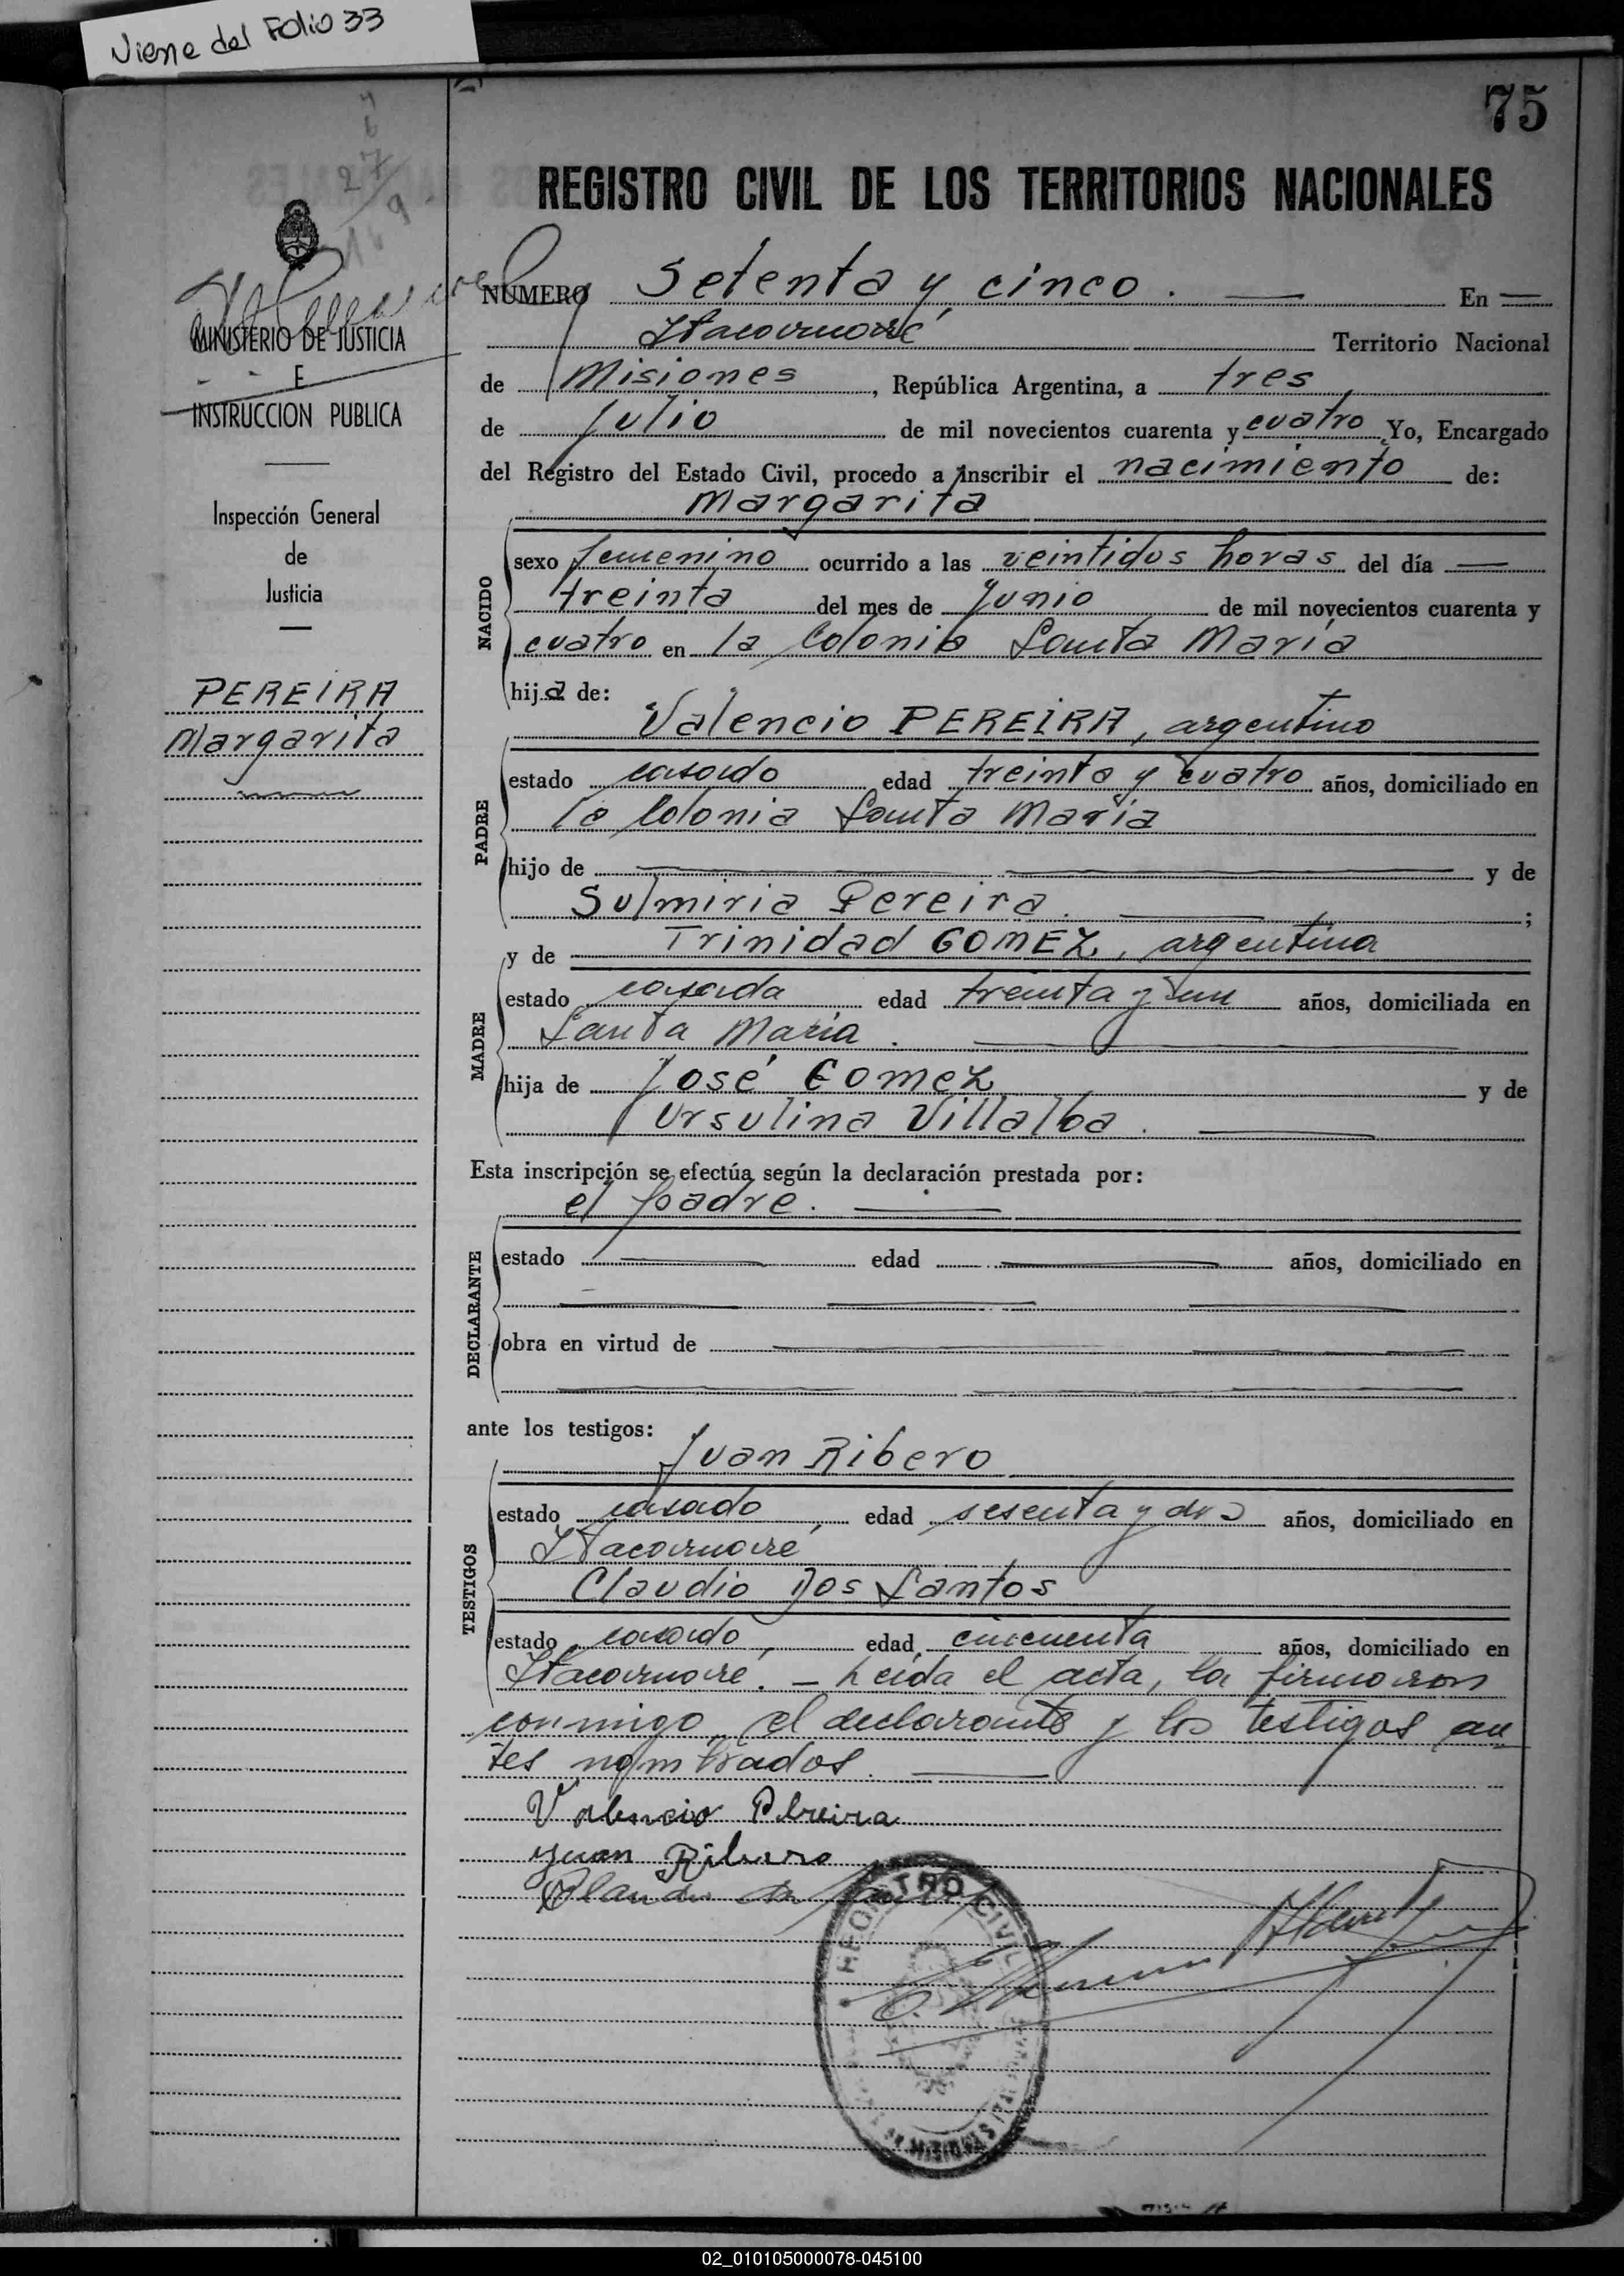 Viene del Folio 33
75
REGISTRO CIVIL DE LOS TERRITORIOS NACIONALES
MINISTERIO DE JUSTICIA
E
INSTRUCCION PUBLICA
Inspección General
de
Justicia
PEREIRA
Margarita
NUMERO Setenta y cinco. — En —
Itacaruaré Territorio Nacional
de Misiones, República Argentina, a tres
de Julio de mil novecientos cuarenta y cuatro Yo, Encargado
del Registro del Estado Civil, procedo a inscribir el nacimiento de:
Margarita
NACIDO
sexo femenino ocurrido a las veintidos horas del día —
treinta del mes de Junio de mil novecientos cuarenta y
cuatro en la Colonia Santa María
hija de:
Valencio PEREIRA, argentino
PADRE
estado casado edad treinta y cuatro años, domiciliado en
la Colonia Santa María
hijo de — y de
Sulmiria Pereira. — ;
y de Trinidad GOMEZ, argentina
MADRE
estado casada edad treinta y un años, domiciliada en
Santa María. —
hija de José Gomez y de
Ursulina Villalba. —
Esta inscripción se efectúa según la declaración prestada por:
el padre. —
DECLARANTE
estado — edad — años, domiciliado en
obra en virtud de —
ante los testigos:
Juan Ribero
TESTIGOS
estado casado edad sesenta y dos años, domiciliado en
Itacaruaré
Claudio Dos Santos
estado casado, edad cincuenta años, domiciliado en
Itacaruaré. — Leida el acta, la firmaron
conmigo, el declarante y los testigos an
tes nombrados. —
Valencio Pereira
Juan Ribero
REGISTRO CIVIL
MISIONES
02_010105000078-045100